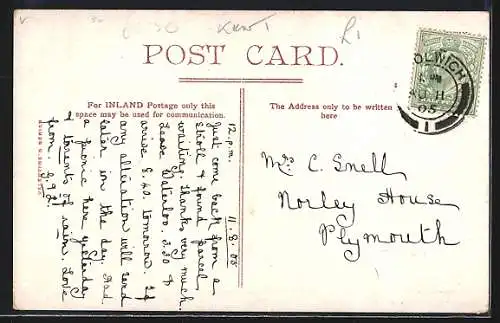 KENT
£1
POST CARD.
For INLAND Postage only this
space may be used for communication.
The Address only to be written
here
12. p.m. 11. 8. 05
Just come back from a
stroll & found parcel
waiting. thanks very much.
Leave Waterloo. 3.30 &
arrive 8.40. tomorrow. If
any alteration will send
later in the day. Had
a picnic here yesterday
& torrents of rain. Love
from.
Mrs C. Snell
Norley House
Plymouth
OLWICH
05
1